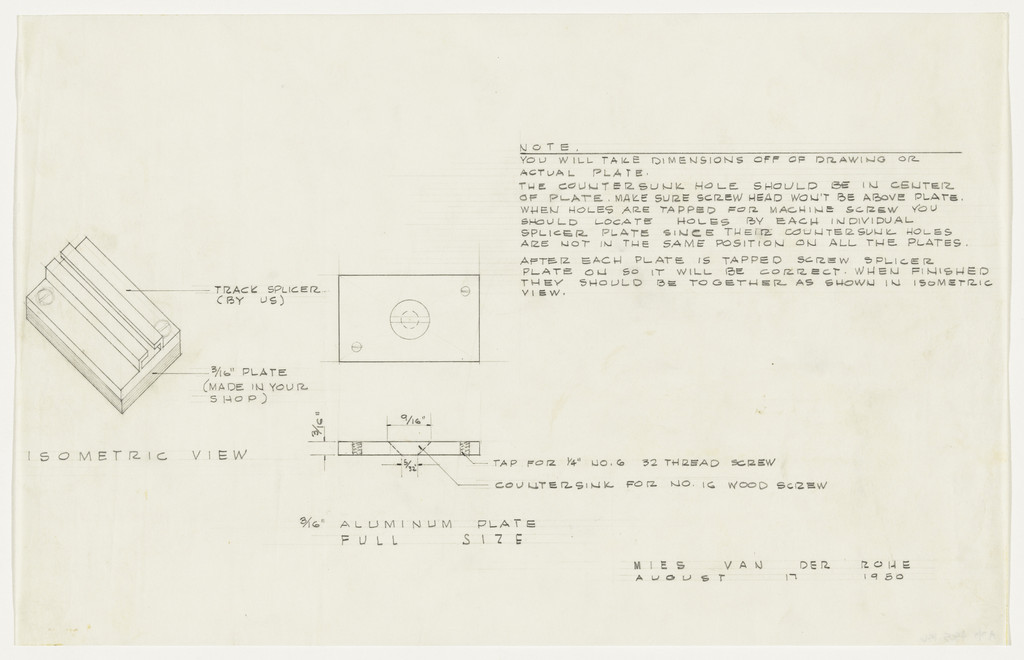 NOTE.
YOU WILL TAKE DIMENSIONS OFF OF DRAWING OR
ACTUAL PLATE.
THE COUNTERSUNK HOLE SHOULD BE IN CENTER
OF PLATE. MAKE SURE SCREW HEAD WON'T BE ABOVE PLATE.
WHEN HOLES ARE TAPPED FOR MACHINE SCREW YOU
SHOULD LOCATE HOLES BY EACH INDIVIDUAL
SPLICER PLATE SINCE THEIR COUNTERSUNK HOLES
ARE NOT IN THE SAME POSITION ON ALL THE PLATES.
AFTER EACH PLATE IS TAPPED SCREW SPLICER
PLATE ON SO IT WILL BE CORRECT. WHEN FINISHED
THEY SHOULD BE TOGETHER AS SHOWN IN ISOMETRIC
VIEW.
TRACK SPLICER
(BY US)
3/16" PLATE
(MADE IN YOUR
SHOP)
ISOMETRIC VIEW
3/16"
9/16"
TAP FOR 1/4" NO. 6 32 THREAD SCREW
COUNTERSINK FOR NO. 16 WOOD SCREW
3/16" ALUMINUM PLATE
FULL SIZE
MIES VAN DER ROHE
AUGUST 17 1950